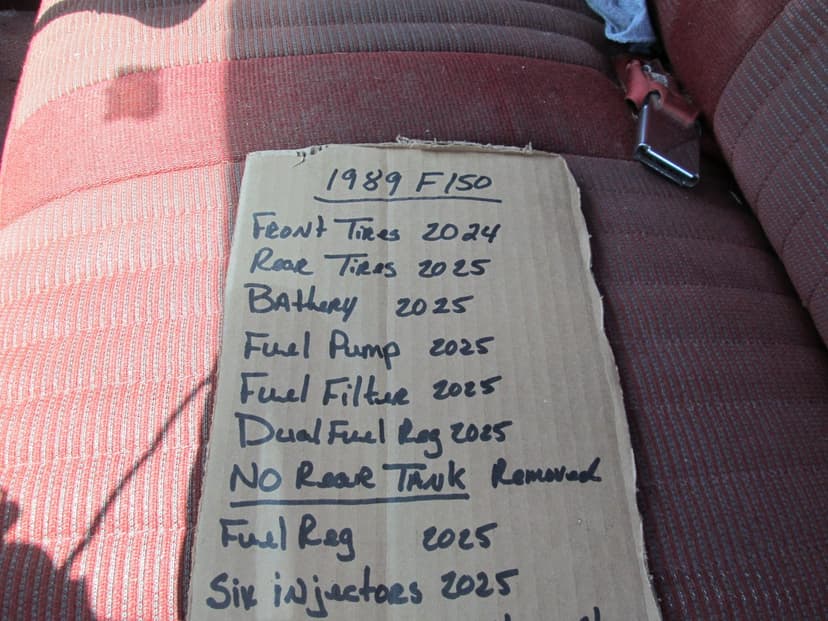 1989 F150
Front Tires 2024
Rear Tires 2025
Battery 2025
Fuel Pump 2025
Fuel Filter 2025
Dual Fuel Reg 2025
NO Rear TANK Removed
Fuel Reg 2025
Six injectors 2025